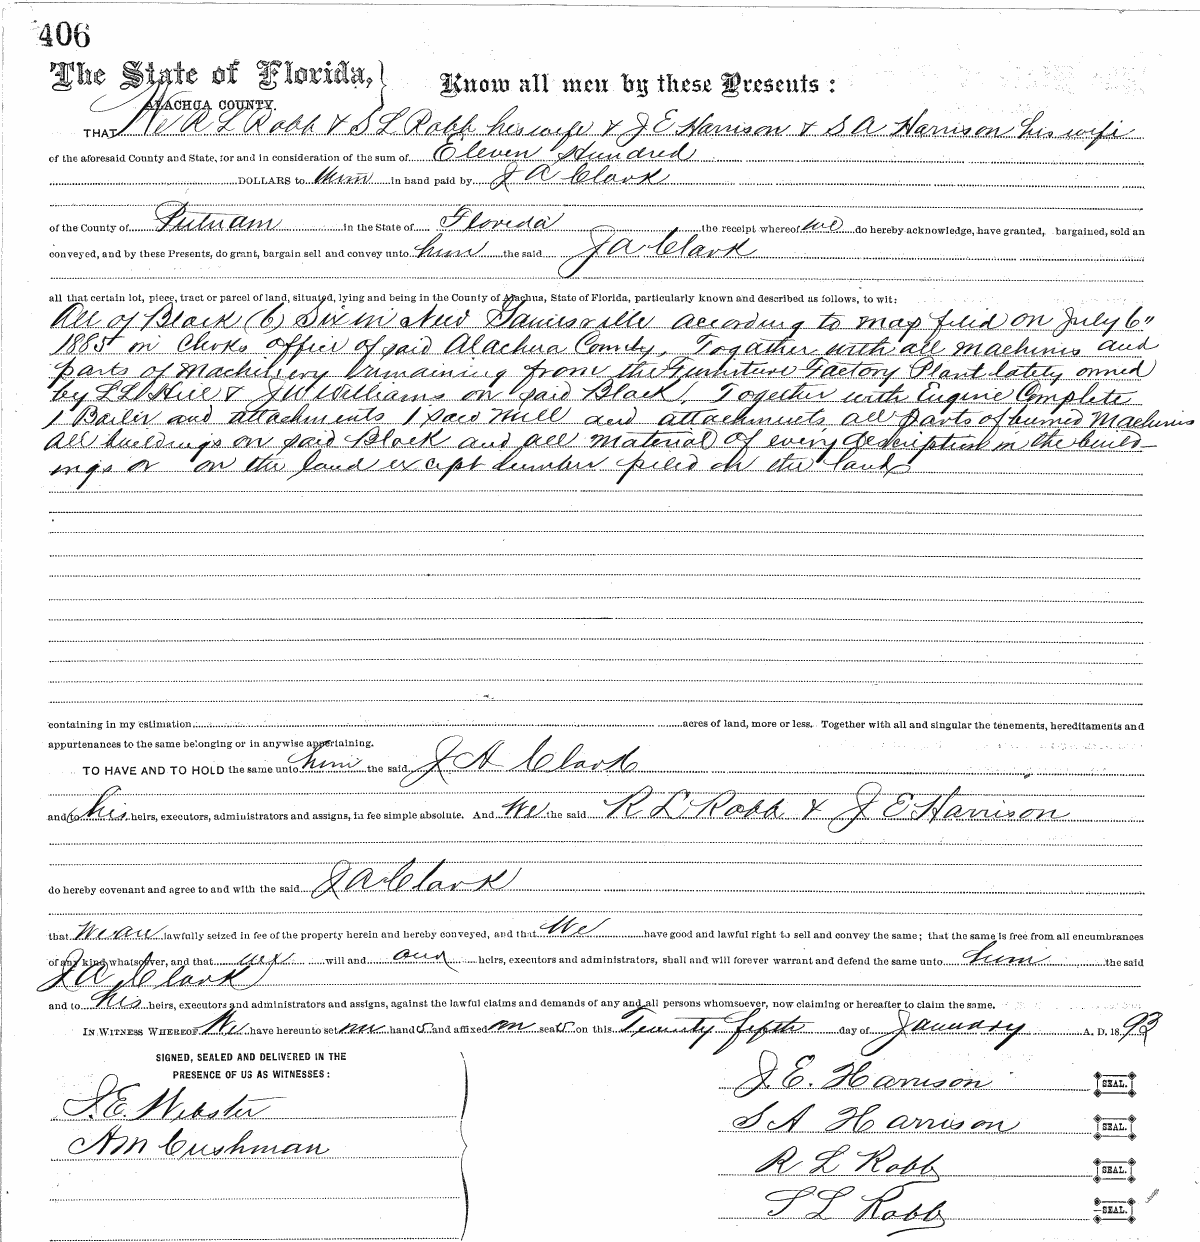 406
The State of Florida, Know all men by these Presents :
ALACHUA COUNTY.
THAT We R L Robb & S L Robb his wife & J E Harrison & S A Harrison his wife
of the aforesaid County and State, for and in consideration of the sum of Eleven Hundred
DOLLARS to in hand paid by J A Clark
of the County of Putnam in the State of Florida the receipt whereof we do hereby acknowledge, have granted, bargained, sold an
conveyed, and by these Presents, do grant, bargain sell and convey unto him the said J A Clark
all that certain lot, piece, tract or parcel of land, situated, lying and being in the County of Alachua, State of Florida, particularly known and described as follows, to wit:
All of Block (6) Six in New Gainesville according to map filed on July 6"
1885 in Clerks office of said Alachua County, Together with all machines and
parts of Machinery remaining from the Furniture Factory Plant lately owned
by L L Hill & J W Williams on said Block, Together with Engine Complete
1 Boiler and attachments 1 saw mill and attachments, all parts of burned Machines
all buildings on said Block and all material of every description in the build
ings or on the land except lumber piled on the land
containing in my estimation acres of land, more or less. Together with all and singular the tenements, hereditaments and
appurtenances to the same belonging or in anywise appertaining.
TO HAVE AND TO HOLD the same unto him the said J A Clark
and to his heirs, executors, administrators and assigns, in fee simple absolute. And We the said R L Robb & J E Harrison
do hereby covenant and agree to and with the said J A Clark
that We are lawfully seized in fee of the property herein and hereby conveyed, and that We have good and lawful right to sell and convey the same; that the same is free from all encumbrances
of any kind whatsoever, and that we will and our heirs, executors and administrators, shall and will forever warrant and defend the same unto him the said
J A Clark
and to his heirs, executors and administrators and assigns, against the lawful claims and demands of any and all persons whomsoever, now claiming or hereafter to claim the same.
IN WITNESS WHEREOF We have hereunto set our hands and affixed our seals on this Twenty fifth day of January A. D. 1893
SIGNED, SEALED AND DELIVERED IN THE
PRESENCE OF US AS WITNESSES :
J. E. Harrison SEAL.
J. E. Webster
S A Harrison SEAL.
A M Cushman
R L Robb SEAL.
S L Robb SEAL.